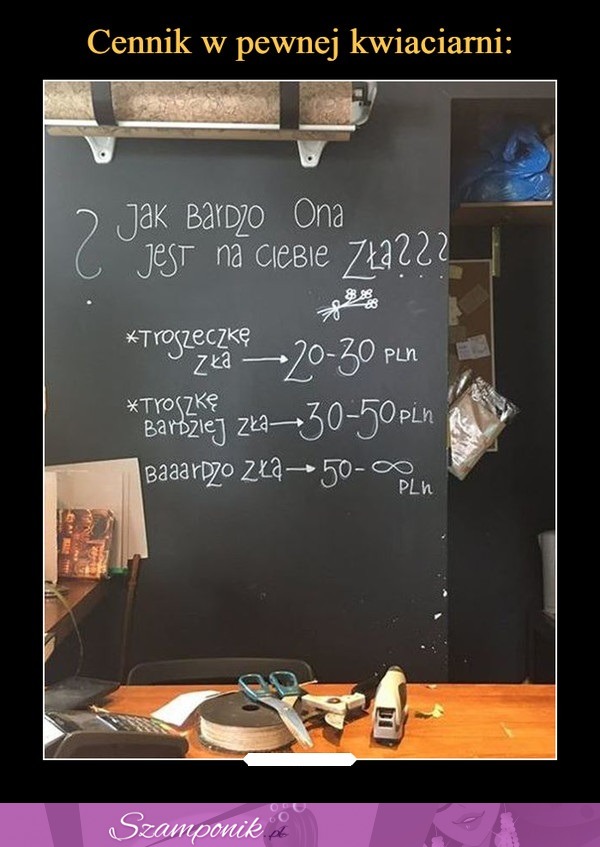 Cennik w pewnej kwiaciarni:
? Jak Bardzo Ona
jest na ciebie Zła???
*Troszeczkę
zła → 20-30 PLN
*Troszkę
Bardziej zła → 30-50 PLN
Baaardzo zła → 50-∞
PLN
Szamponik.pl